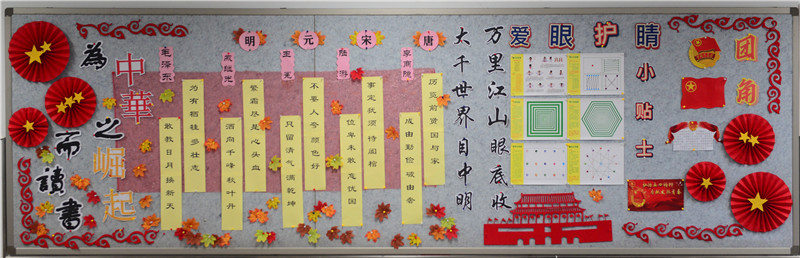 為
中華
之
崛起
而讀書
唐
李商隐
历览前贤国与家
成由勤俭破由奢
宋
陆游
位卑未敢忘忧国
事定犹须待阖棺
元
王冕
不要人夸颜色好
只留清气满乾坤
明
戚继光
繁霜尽是心头血
洒向千峰秋叶丹
毛泽东
为有牺牲多壮志
敢教日月换新天
万里江山眼底收
大千世界目中明
爱眼护睛
小贴士
团角